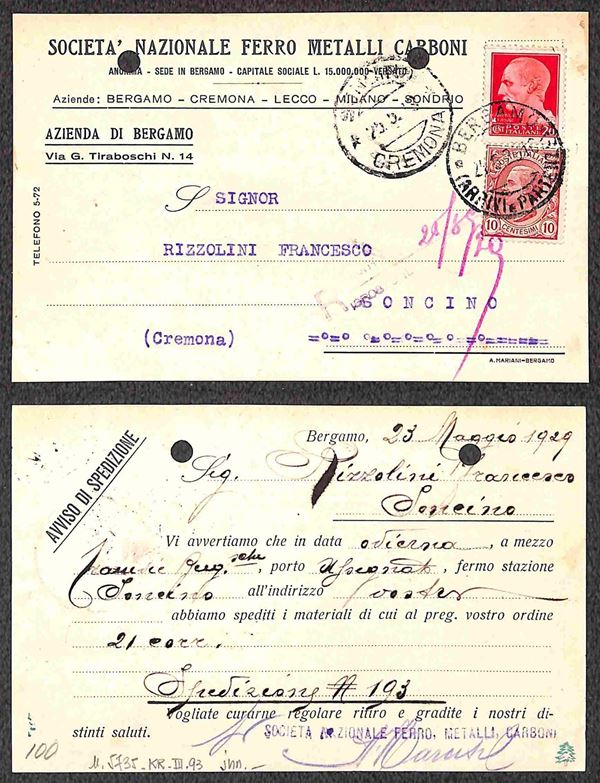 SOCIETA' NAZIONALE FERRO METALLI CARBONI
ANONIMA - SEDE IN BERGAMO - CAPITALE SOCIALE L. 15.000.000 VERSATO
Aziende: BERGAMO - CREMONA - LECCO - MILANO - SONDRIO
AZIENDA DI BERGAMO
Via G. Tiraboschi N. 14
TELEFONO 5-72
CREMONA
BERGAMO
(ARRIVI E PARTENZE)
POSTE ITALIANE
10 CENTESIMI 10
S SIGNOR
RIZZOLINI FRANCESCO
SONCINO
(Cremona)
A. MARIANI-BERGAMO
AVVISO DI SPEDIZIONE
Bergamo, 23 Maggio 1929
Sig. Rizzolini Francesco
Soncino
Vi avvertiamo che in data odierna, a mezzo
, porto , fermo stazione
Soncino all'indirizzo vostro
abbiamo spediti i materiali di cui al preg. vostro ordine
21 corr.
Spedizione N 193
Vogliate curarne regolare ritiro e gradite i nostri di-
stinti saluti.
SOCIETÀ NAZIONALE FERRO, METALLI, CARBONI
100